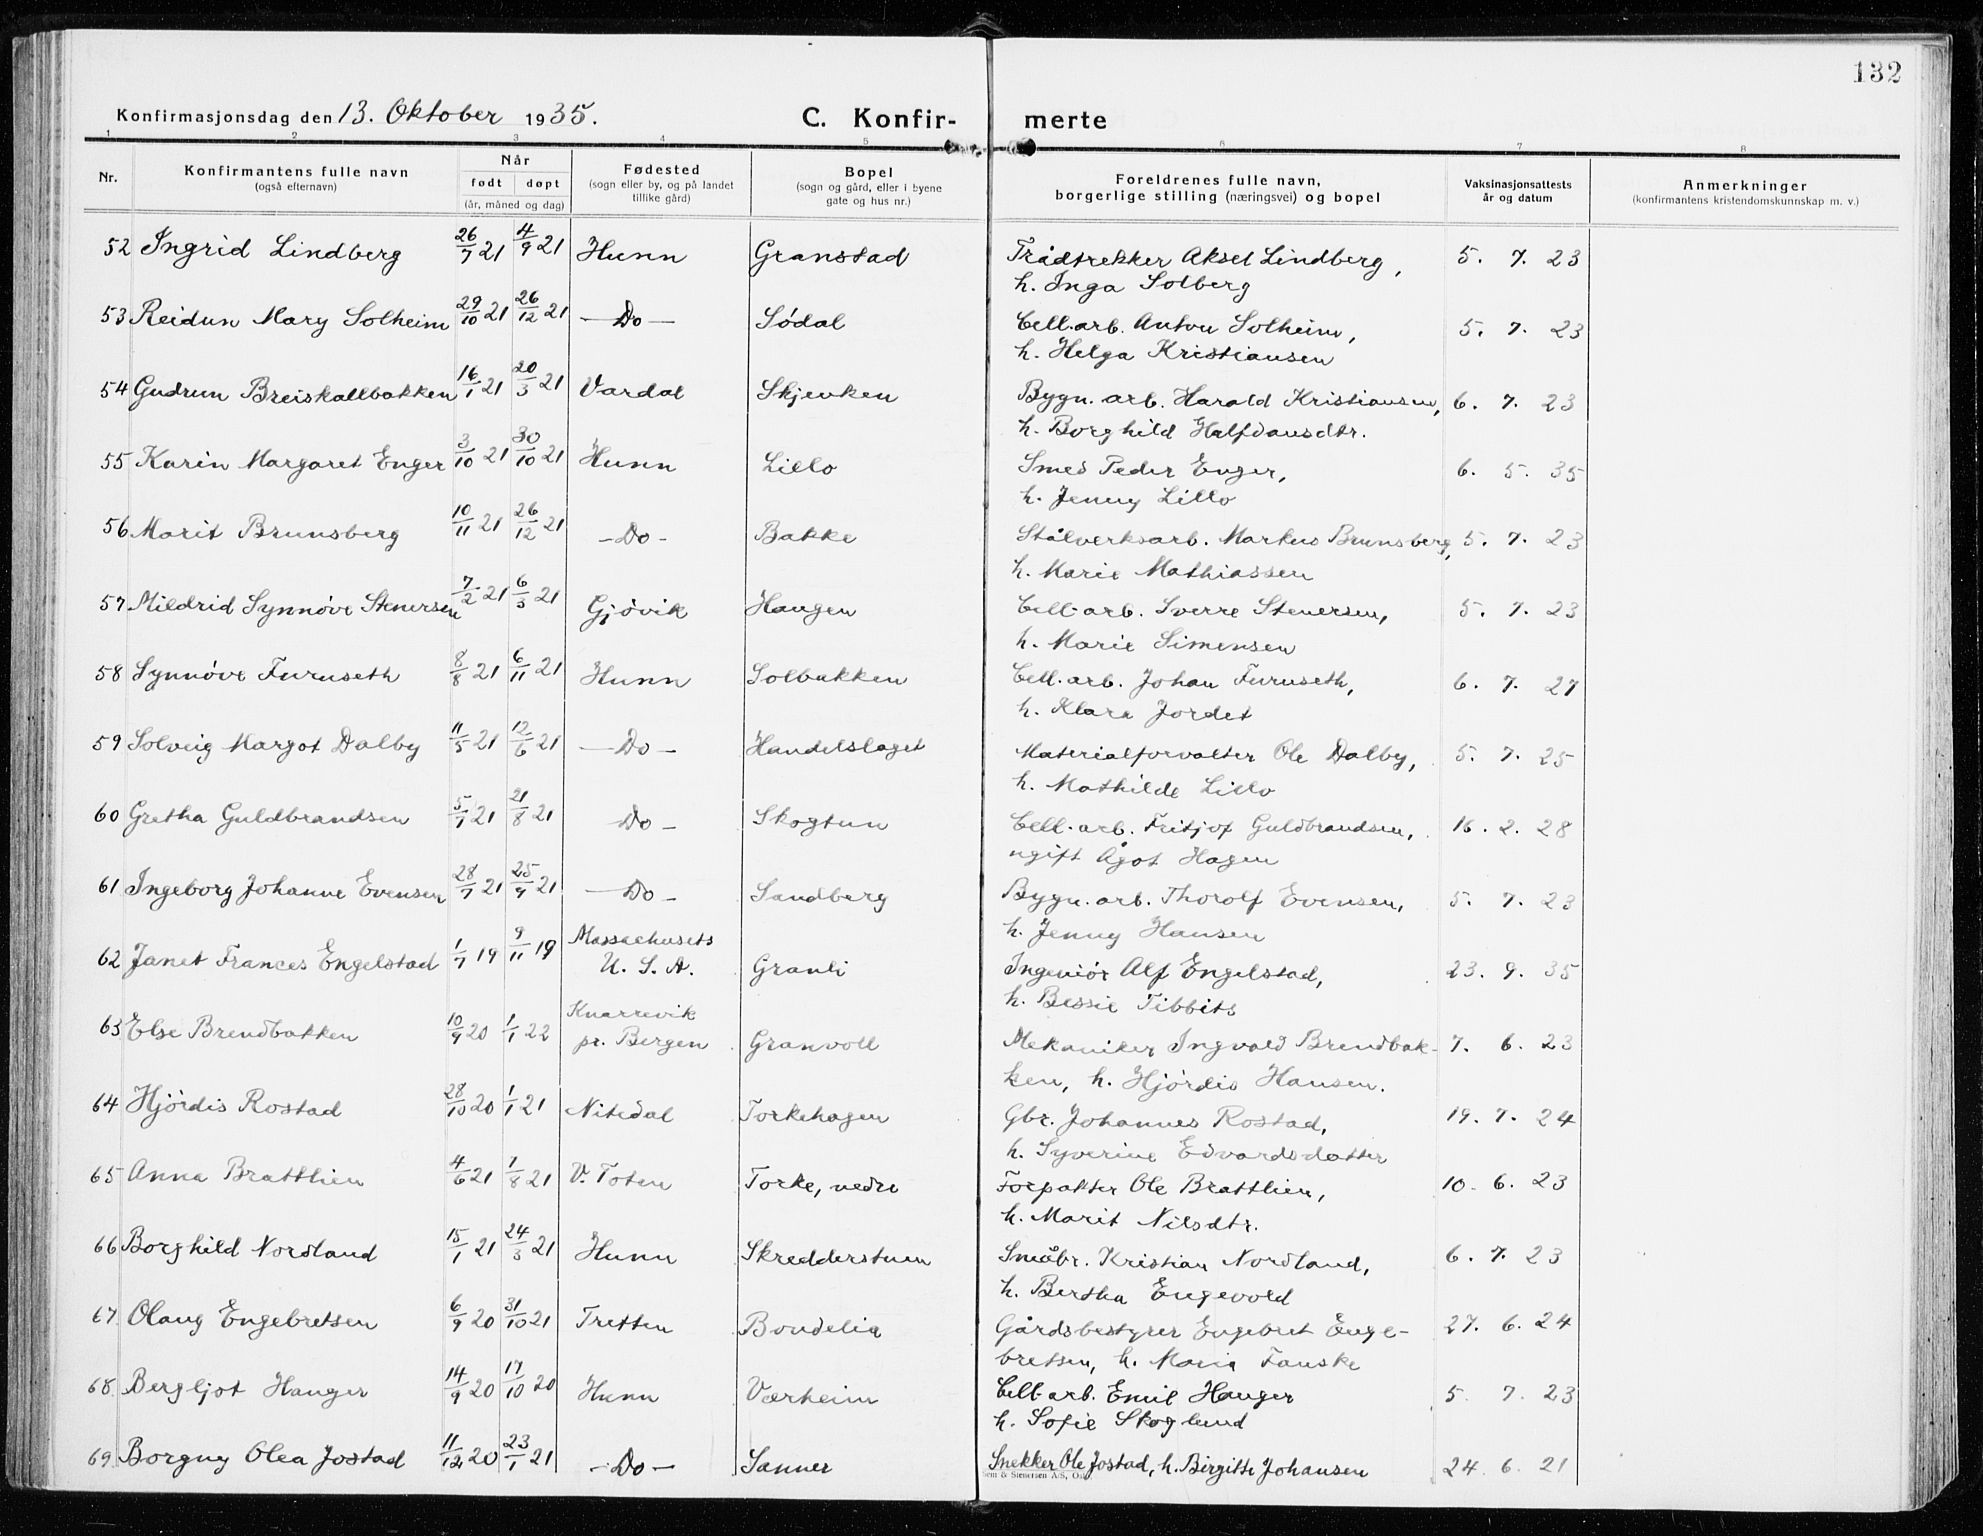 132
Konfirmasjonsdag den 13. Oktober 1935. C. Konfir- merte
1 2 3 4 5 6 7 8
Nr. Konfirmantens fulle navn (også efternavn) Når født døpt (år, måned og dag) Fødested (sogn eller by, og på landet tillike gård) Bopel (sogn og gård, eller i byene gate og hus nr.) Foreldrenes fulle navn, borgerlige stilling (næringsvei) og bopel Vaksinasjonsattests år og datum Anmerkninger (konfirmantens kristendomskunnskap m. v.)
52 Ingrid Lindberg 26/7 21 4/9 21 Hunn Granstad Trådtrekker Aksel Lindberg, 5. 7. 23
h. Inga Solberg
53 Reidun Mary Solheim 29/10 21 26/12 21 — Do — Sødal Cell.arb. Anton Solheim, 5. 7. 23
h. Helga Kristiansen
54 Gudrun Breiskallbakken 16/1 21 20/3 21 Vardal Skjenken Bygn. arb. Harald Kristiansen, 6. 7. 23
h. Borghild Halfdansdtr.
55 Karin Margaret Enger 3/10 21 30/10 21 Hunn Lillo Smed Peder Enger, 6. 5. 35
h. Jenny Lillo
56 Marit Brunsberg 10/11 21 26/12 21 — Do — Bakke Stålverksarb. Markus Brunsberg, 5. 7. 23
h. Marie Mathiassen
57 Mildrid Synnøve Stenersen 7/2 21 6/3 21 Gjøvik Haugen Cell-arb. Sverre Stenersen, 5. 7. 23
h. Marie Simensen
58 Synnøve Furuseth 8/8 21 6/11 21 Hunn Solbakken Cell.arb. Johan Furuseth, 6. 7. 27
h. Klara Jordet
59 Solveig Margot Dalby 11/5 21 12/6 21 — Do — Handelslaget Materialforvalter Ole Dalby, 5. 7. 25
h. Mathilde Lillo
60 Gretha Guldbrandsen 5/7 21 21/8 21 Do — Skogtun Cell.arb. Fritjof Guldbrandsen, 16. 2. 28
ugift Ågot Hagen
61 Ingeborg Johanne Evensen 28/7 21 25/9 21 — Do — Sandberg Bygn. arb. Thorolf Evensen, 5. 7. 23
h. Jenny Hansen
62 Janet Frances Engelstad 1/7 19 9/11 19 Massachusets U. S. A. Granli Ingeniør Alf Engelstad, 23. 9. 35
h. Bessie Tibbits
63 Else Brendbakken 10/9 20 1/1 22 Knarrevik pr. Bergen Granvoll Mekaniker Ingvald Brendbak- 7. 6. 23
ken, h. Hjørdis Hansen.
64 Hjördis Rostad 28/10 20 1/1 21 Nitedal Torkehagen Gbr. Johannes Rostad, 19. 7. 24
h. Syverine Edvardsdatter
65 Anna Brattlien 4/6 21 7/8 21 V. Toten Torke, nedre Forpakter Ole Brattlien, 10. 6. 23
h. Marit Nilsdtr.
66 Borghild Nordland 15/1 21 24/3 21 Hunn Skredderstuen Småbr. Kristian Nordland, 6. 7. 23
h. Bertha Engevold
67 Olaug Engebretsen 6/9 20 31/10 21 Tretten Bondelia Gårdsbestyrer Engebret Enge- 27. 6. 24
bretsen, h. Maria Fauske
68 Bergljot Hanger 14/9 20 17/10 20 Hunn Værheim Cell-arb. Emil Hanger 5. 7. 23
h. Sofie Skoglund
69 Borgny Olea Jostad 11/12 20 23/1 21 — Do — Sanner Snekker Ole Jostad, h. Birgitte Johansen 24. 6. 21
Sem & Stenersen A/S, Oslo